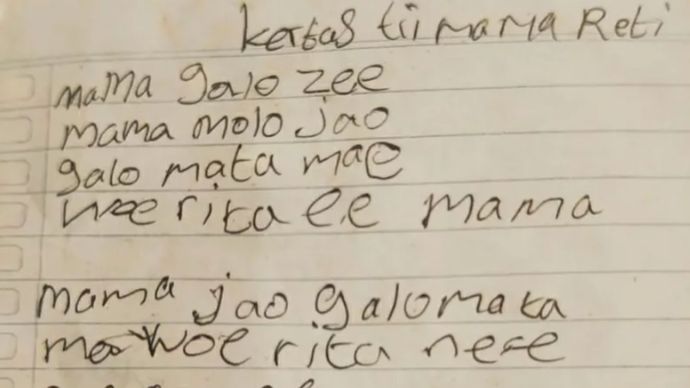 kertas tii mama Reti
mama galo zee
mama molo jao
galo mata mae
rita ee mama
mama jao galo mata
woe rita